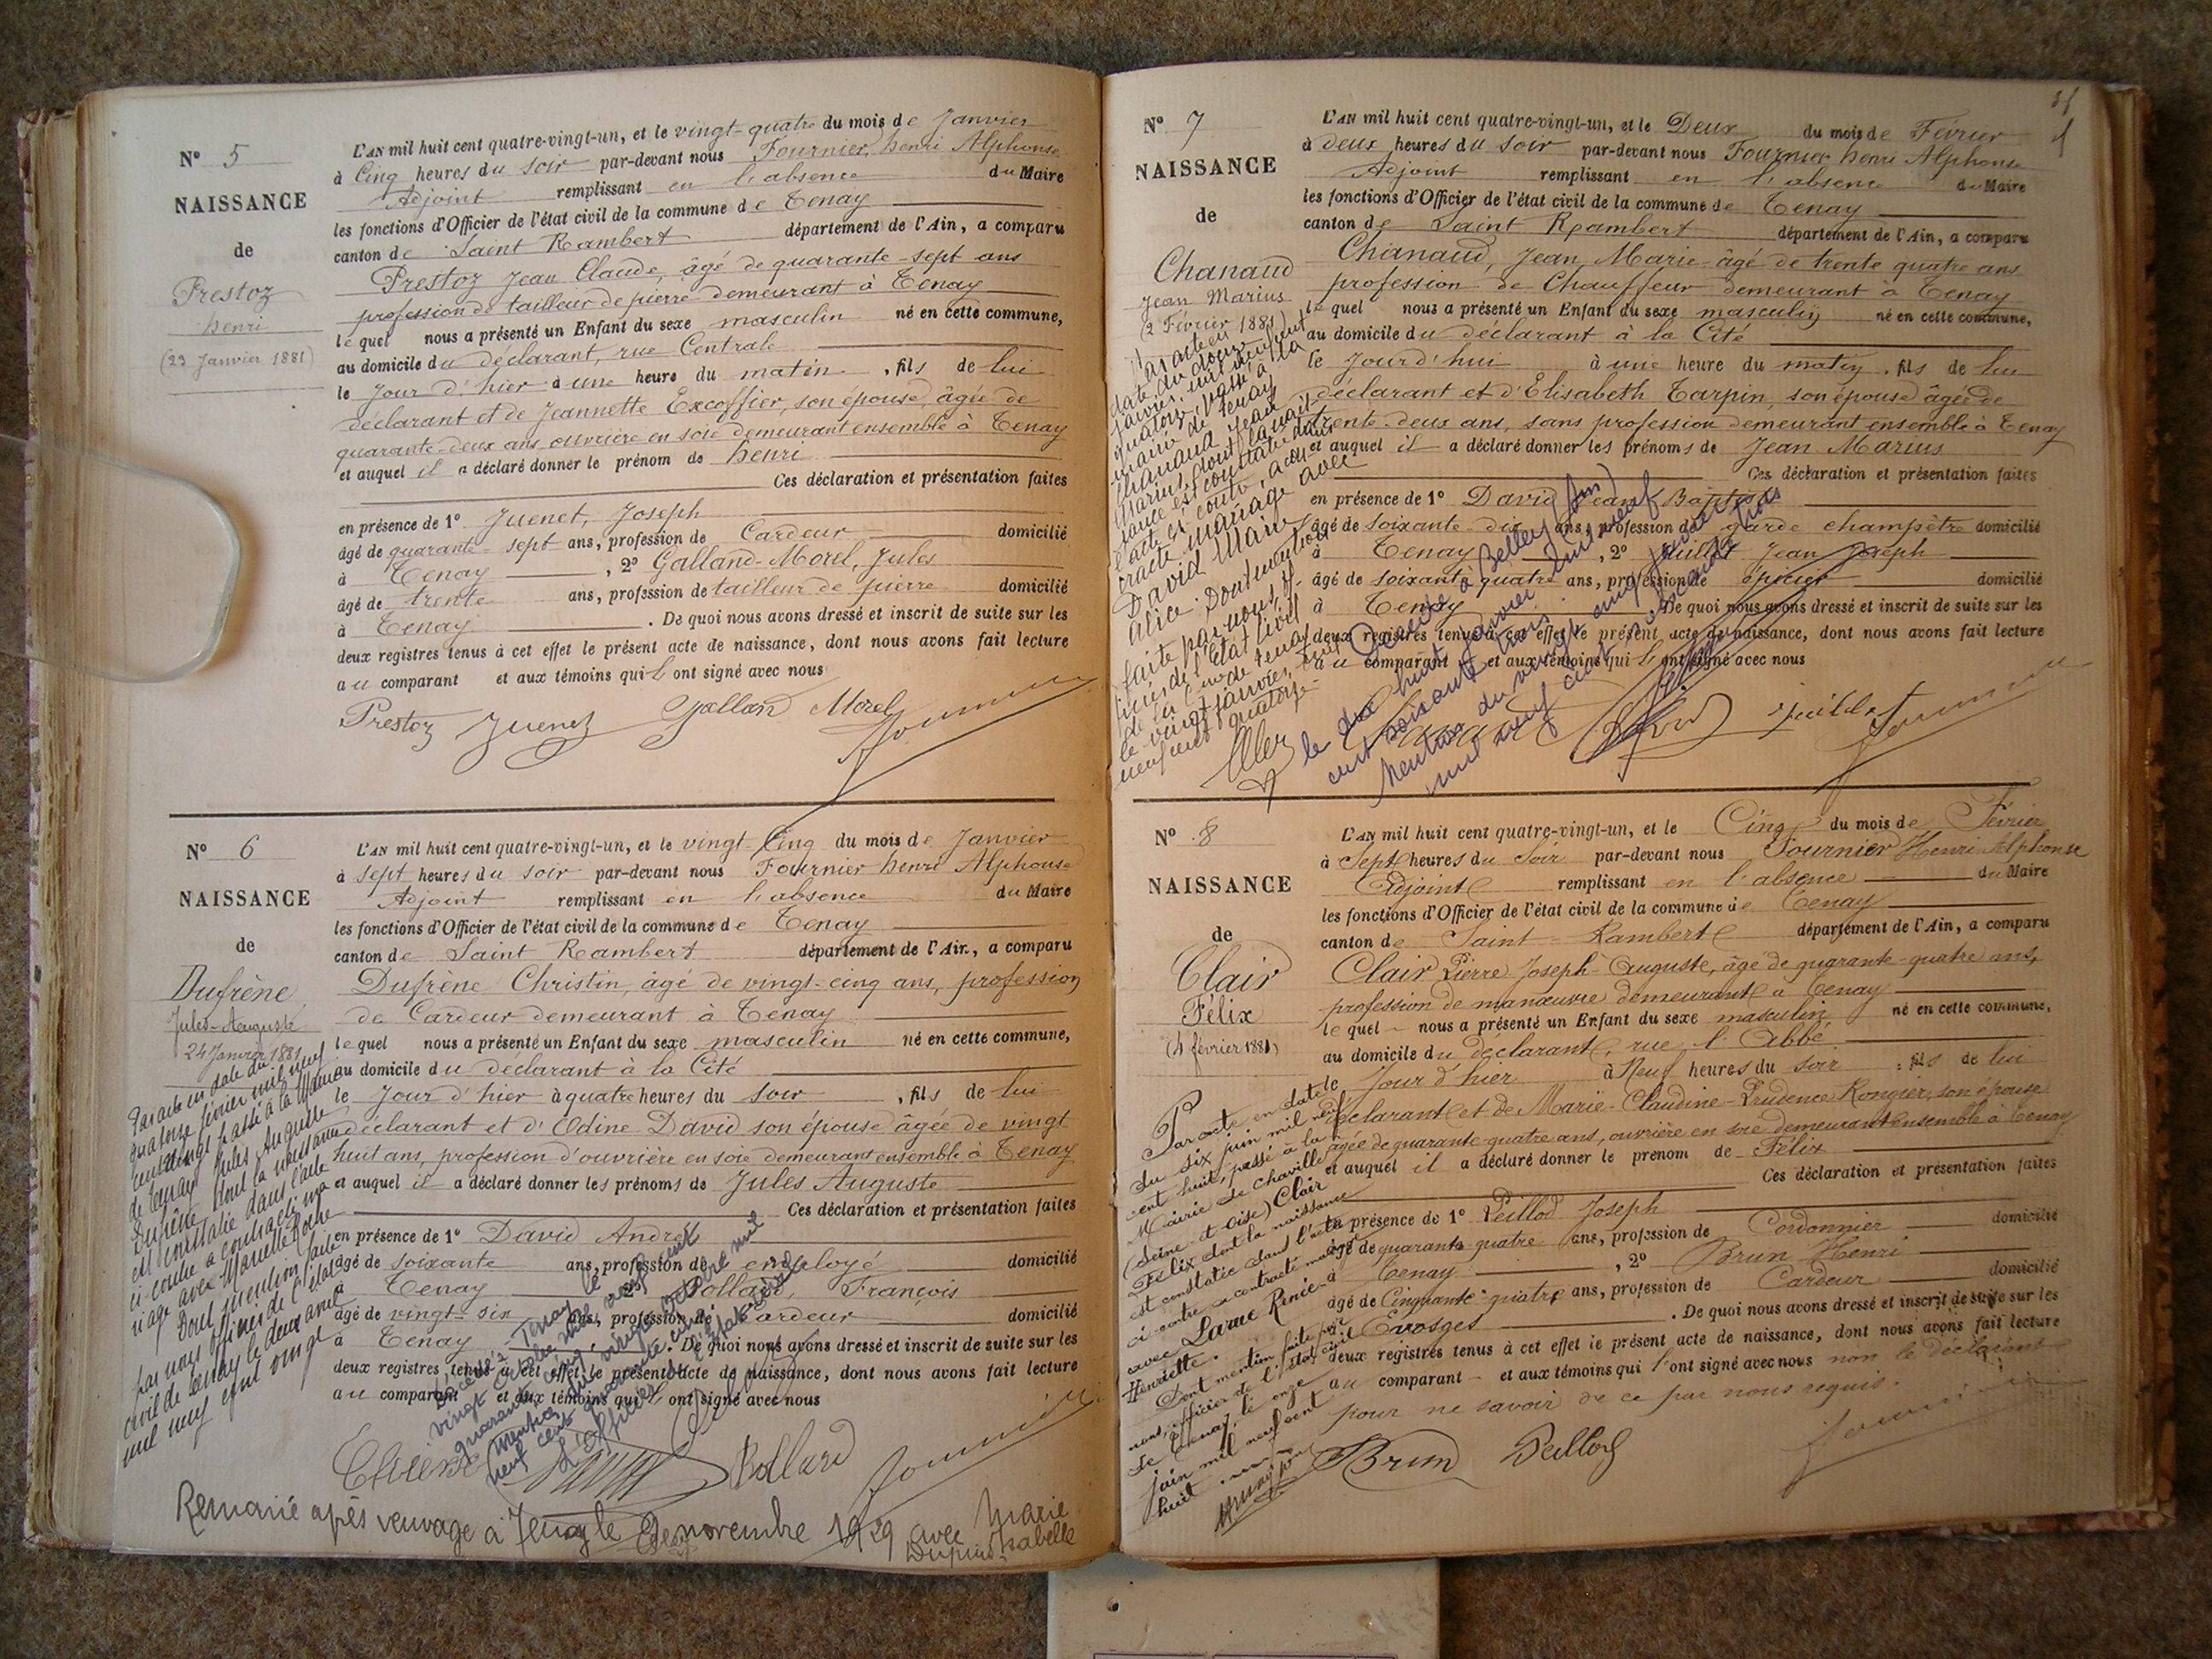 N° 5
NAISSANCE
de
Prestoz
henri
(23 Janvier 1881)
L'AN mil huit cent quatre-vingt-un, et le vingt-quatre du mois de Janvier
à Cinq heures du soir par-devant nous Fournier, henri Alphonse
Adjoint remplissant en l'absence du Maire
les fonctions d'Officier de l'état civil de la commune de Tenay
canton de Saint Rambert département de l'Ain, a comparu
Prestoz Jean Claude, âgé de quarante-sept ans
profession de tailleur de pierre demeurant à Tenay
lequel nous a présenté un Enfant du sexe masculin né en cette commune,
au domicile du déclarant, rue Centrale
le Jour d'hier à une heure du matin, fils de lui
déclarant et de Jeannette Excoffier, son épouse, âgée de
quarante-deux ans ouvrière en soie demeurant ensemble à Tenay
et auquel il a déclaré donner le prénom de henri
Ces déclaration et présentation faites
en présence de 1° Juenet, Joseph
âgé de quarante-sept ans, profession de Cardeur domicilié
à Tenay, 2° Galland-Morel, Jules
âgé de trente ans, profession de tailleur de pierre domicilié
à Tenay. De quoi nous avons dressé et inscrit de suite sur les
deux registres tenus à cet effet le présent acte de naissance, dont nous avons fait lecture
au comparant et aux témoins qui l'ont signé avec nous
Prestoz Juenet Galland Morel Fournier
N° 6
NAISSANCE
de
Dufrène
Jules-Auguste
24 Janvier 1881
Par acte en date du
quatorze février mil neuf
cent vingt passé à la Mairie
de Tenay Jules Auguste
Dufrène dont la naissance
est constatée dans l'acte
ci-contre a contracté ma
riage avec Marcelle Roche
Dont mention faite
par nous officier de l'état
civil de Tenay le deux avril
mil neuf cent vingt
L'AN mil huit cent quatre-vingt-un, et le vingt-Cinq du mois de Janvier
à sept heures du soir par-devant nous Fournier henri Alphonse
Adjoint remplissant en l'absence du Maire
les fonctions d'Officier de l'état civil de la commune de Tenay
canton de Saint Rambert département de l'Ain, a comparu
Dufrène Christin, âgé de vingt-cinq ans, profession
de Cardeur demeurant à Tenay
lequel nous a présenté un Enfant du sexe masculin né en cette commune,
au domicile du déclarant à la Cité
le Jour d'hier à quatre heures du soir, fils de lui
déclarant et d'Odine David son épouse âgée de vingt
huit ans, profession d'ouvrière en soie demeurant ensemble à Tenay
et auquel il a déclaré donner les prénoms de Jules Auguste
Ces déclaration et présentation faites
en présence de 1° David André
âgé de soixante ans, profession de employé domicilié
à Tenay, 2° Pollard, François
âgé de vingt-six ans, profession de Cardeur domicilié
à Tenay. De quoi nous avons dressé et inscrit de suite sur les
deux registres tenus à cet effet le présent acte de naissance, dont nous avons fait lecture
au comparant et aux témoins qui l'ont signé avec nous
Décédé à Tenay le
vingt octobre mil neuf cent
quarante cinq
Mention du vingt octobre mil
neuf cent quarante cinq
L'officier de l'état civil
Pollard Fournier
Remarié après veuvage à Tenay le 9 novembre 1929 avec Marie
Isabelle
N° 7
NAISSANCE
de
Chanaud
Jean Marius
(2 Février 1881)
Par acte en
date du douze
janvier mil neuf cent
quatorze, passé à la
mairie de Tenay
Chanaud Jean
Marius, dont la nais
sance est constatée dans
l'acte ci-contre, a con
tracté mariage avec
David Marie
Alice. Dont mention
faite par nous, offi
cier de l'Etat civil
de la Cne de Tenay
le vingt janvier mil
neuf cent quatorze
L'AN mil huit cent quatre-vingt-un, et le Deux du mois de Février
à deux heures du soir par-devant nous Fournier henri Alphonse
Adjoint remplissant en l'absence du Maire
les fonctions d'Officier de l'état civil de la commune de Tenay
canton de Saint Rambert département de l'Ain, a comparu
Chanaud, Jean Marie âgé de trente quatre ans
profession de Chauffeur demeurant à Tenay
lequel nous a présenté un Enfant du sexe masculin né en cette commune,
au domicile du déclarant à la Cité
le Jour d'hui à une heure du matin, fils de lui
déclarant et d'Elisabeth Tarpin, son épouse âgée de
trente-deux ans, sans profession demeurant ensemble à Tenay
et auquel il a déclaré donner les prénoms de Jean Marius
Ces déclaration et présentation faites
en présence de 1° David Jean Baptiste
âgé de soixante dix ans, profession de garde champêtre domicilié
à Tenay, 2° Juillet Jean Joseph
âgé de soixante quatre ans, profession de épicier domicilié
à Tenay De quoi nous avons dressé et inscrit de suite sur les
deux registres tenus à cet effet le présent acte de naissance, dont nous avons fait lecture
au comparant et aux témoins qui l'ont signé avec nous
Décédé à Belley (Ain)
le dix huit janvier mil neuf
cent soixante trois
Mention du vingt cinq janvier
mil neuf cent soixante trois
Chanaud Juillet Fournier
N° 8
NAISSANCE
de
Clair
Félix
(4 février 1881)
Par acte en date
du six juin mil neuf
cent huit, passé à la
Mairie de Chaville
(Seine et Oise) Clair
Félix dont la naissance
est constatée dans l'acte
ci-contre a contracté mariage
avec Larue Renée
Henriette.
Dont mention faite par
nous, officier de l'état civil
de Tenay, le onze
juin mil neuf cent
huit
L'AN mil huit cent quatre-vingt-un, et le Cinq du mois de Février
à Sept heures du Soir par-devant nous Fournier Henri Alphonse
Adjoint remplissant en l'absence du Maire
les fonctions d'Officier de l'état civil de la commune de Tenay
canton de Saint-Rambert département de l'Ain, a comparu
Clair Pierre Joseph-Auguste, âgé de quarante-quatre ans,
profession de manœuvre demeurant à Tenay
lequel nous a présenté un Enfant du sexe masculin né en cette commune,
au domicile du déclarant, rue l'Abbé
le Jour d'hier à Neuf heures du soir fils de lui
déclarant et de Marie-Claudine-Prudence Rongier, son épouse
âgée de quarante-quatre ans, ouvrière en soie demeurant ensemble à Tenay
et auquel il a déclaré donner le prénom de Félix
Ces déclaration et présentation faites
en présence de 1° Peillod Joseph
âgé de quarante quatre ans, profession de Cordonnier domicilié
à Tenay, 2° Brun Henri
âgé de Cinquante-quatre ans, profession de Cardeur domicilié
à Evosges. De quoi nous avons dressé et inscrit de suite sur les
deux registres tenus à cet effet le présent acte de naissance, dont nous avons fait lecture
au comparant et aux témoins qui l'ont signé avec nous non le déclarant
pour ne savoir de ce par nous requis.
Brun Peillod Fournier